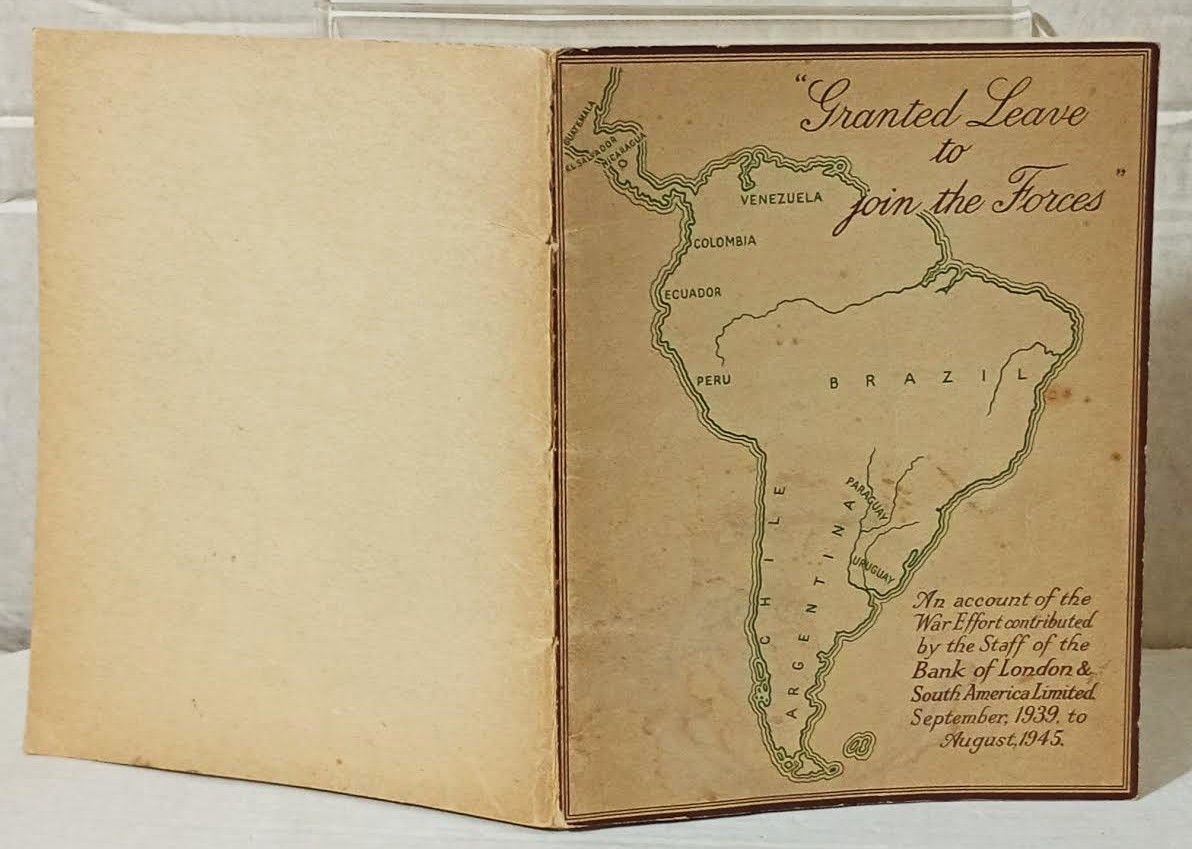 "Granted Leave
to
join the Forces"
GUATEMALA
EL SALVADOR
NICARAGUA
VENEZUELA
COLOMBIA
ECUADOR
PERU
BRAZIL
CHILE
ARGENTINA
PARAGUAY
URUGUAY
An account of the
War Effort contributed
by the Staff of the
Bank of London &
South America Limited.
September, 1939, to
August, 1945.